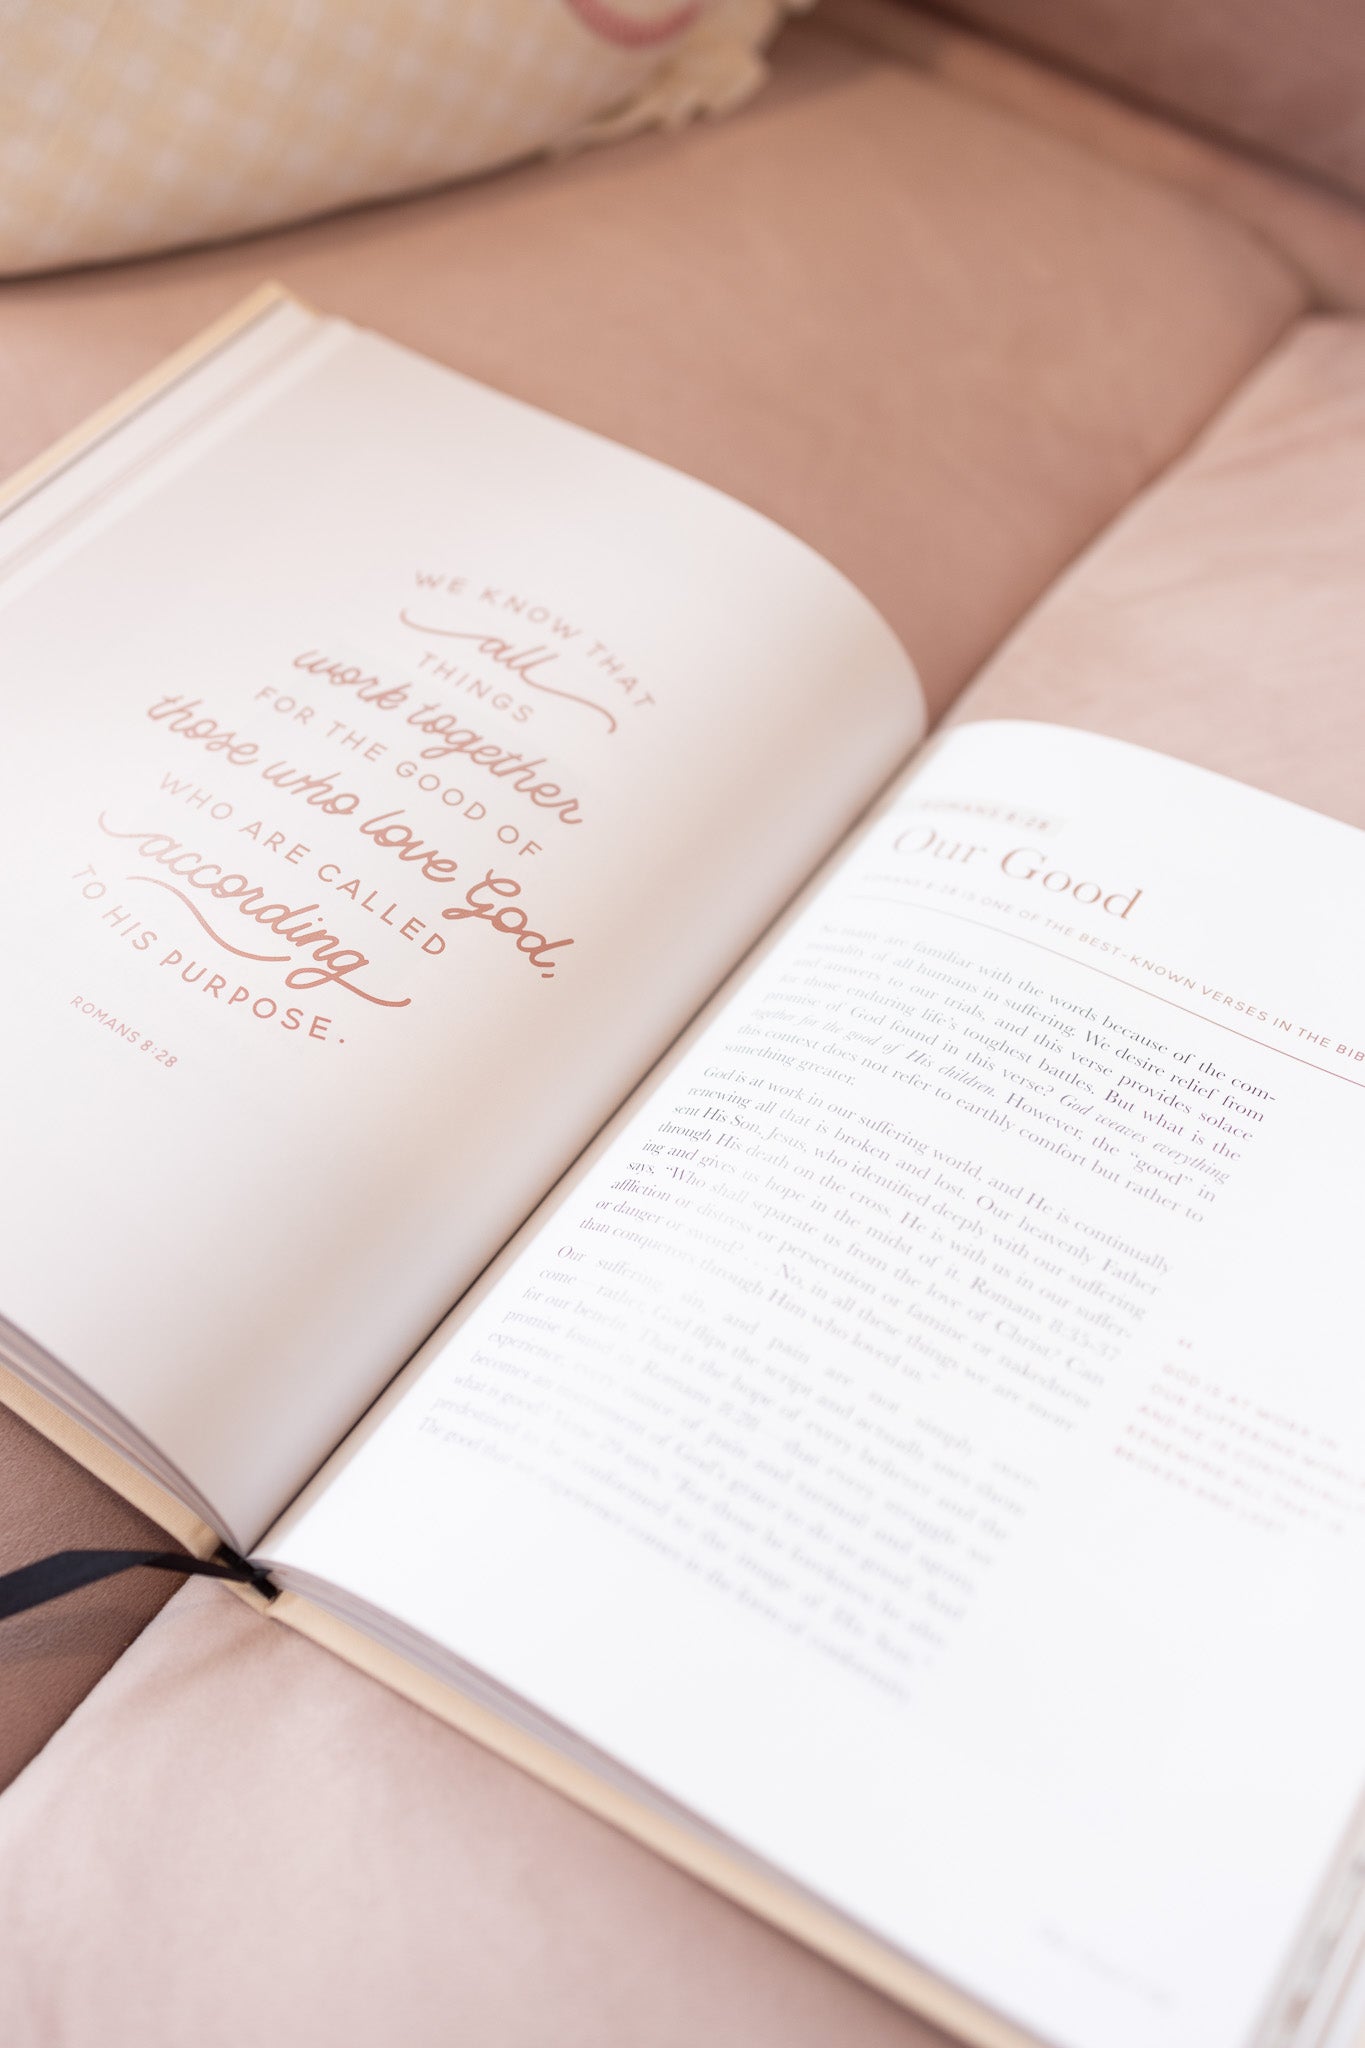 WE KNOW THAT
all
THINGS
work together
FOR THE GOOD OF
those who love God,
WHO ARE CALLED
according
TO HIS PURPOSE.
ROMANS 8:28
ROMANS 8:28
Our Good
ROMANS 8:28 IS ONE OF THE BEST-KNOWN VERSES IN THE BIB
So many are familiar with the words because of the com-
monality of all humans in suffering. We desire relief from
and answers to our trials, and this verse provides solace
for those enduring life's toughest battles. But what is the
promise of God found in this verse? God weaves everything
together for the good of His children. However, the "good" in
this context does not refer to earthly comfort but rather to
something greater.
God is at work in our suffering world, and He is continually
renewing all that is broken and lost. Our heavenly Father
sent His Son, Jesus, who identified deeply with our suffering
through His death on the cross. He is with us in our suffer-
ing and gives us hope in the midst of it. Romans 8:35-37
says, "Who shall separate us from the love of Christ? Can
affliction or distress or persecution or famine or nakedness
or danger or sword? . . . No, in all these things we are more
than conquerors through Him who loved us."
Our suffering, sin, and pain are not simply over-
come—rather, God flips the script and actually uses them
for our benefit. That is the hope of every believer and the
promise found in Romans 8:28—that every struggle we
experience, every ounce of pain and turmoil and agony,
becomes an instrument of God's grace to do us good. And
what is good? Verse 29 says, "For those he foreknew he also
predestined to be conformed to the image of His Son."
The good that we experience comes in the form of
“
GOD IS AT WORK IN
OUR SUFFERING WORLD,
AND HE IS CONTINUALLY
RENEWING ALL THAT IS
BROKEN AND LOST.